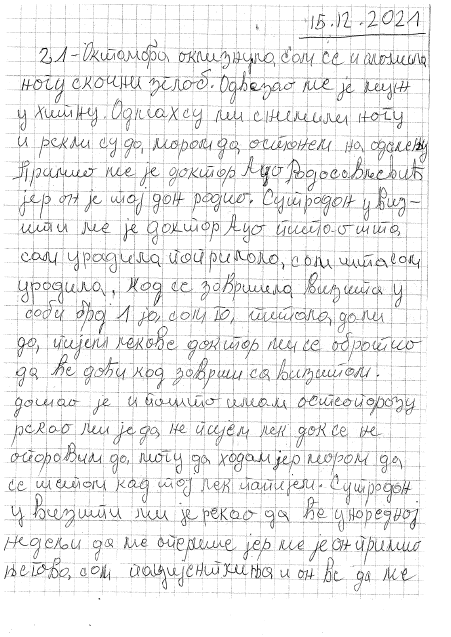 15.12.2021
21-Октомбра оклизнула сам се и сломила
ногу скочни зглоб. Одвезао ме је муж
у хитну. Одмах су ми снимили ногу
и рекли су да морам да останем на одељењу
Примио ме је доктор Ацо Радосављевић
јер он је тај дан радио. Сутрадан у визи-
ти ме је доктор Ацо пита шта
сам урадила испричала сам шта сам
урадила, кад се завршила визита у
соби број 1 ја сам га питала да ли
да пијем лекове доктор ми се обратио
да ће доћи кад заврши са визитом.
дошао је и пошто имам остеопорозу
рекао ми је да не пијем лек док се не
опоравим да могу да ходам јер морам да
се шетам кад тај лек попијем. Сутрадан
у визити ми је рекао да ће у наредној
недељи да ме оперише јер ме је он примио
његова сам пацијенткиња и он ће да ме